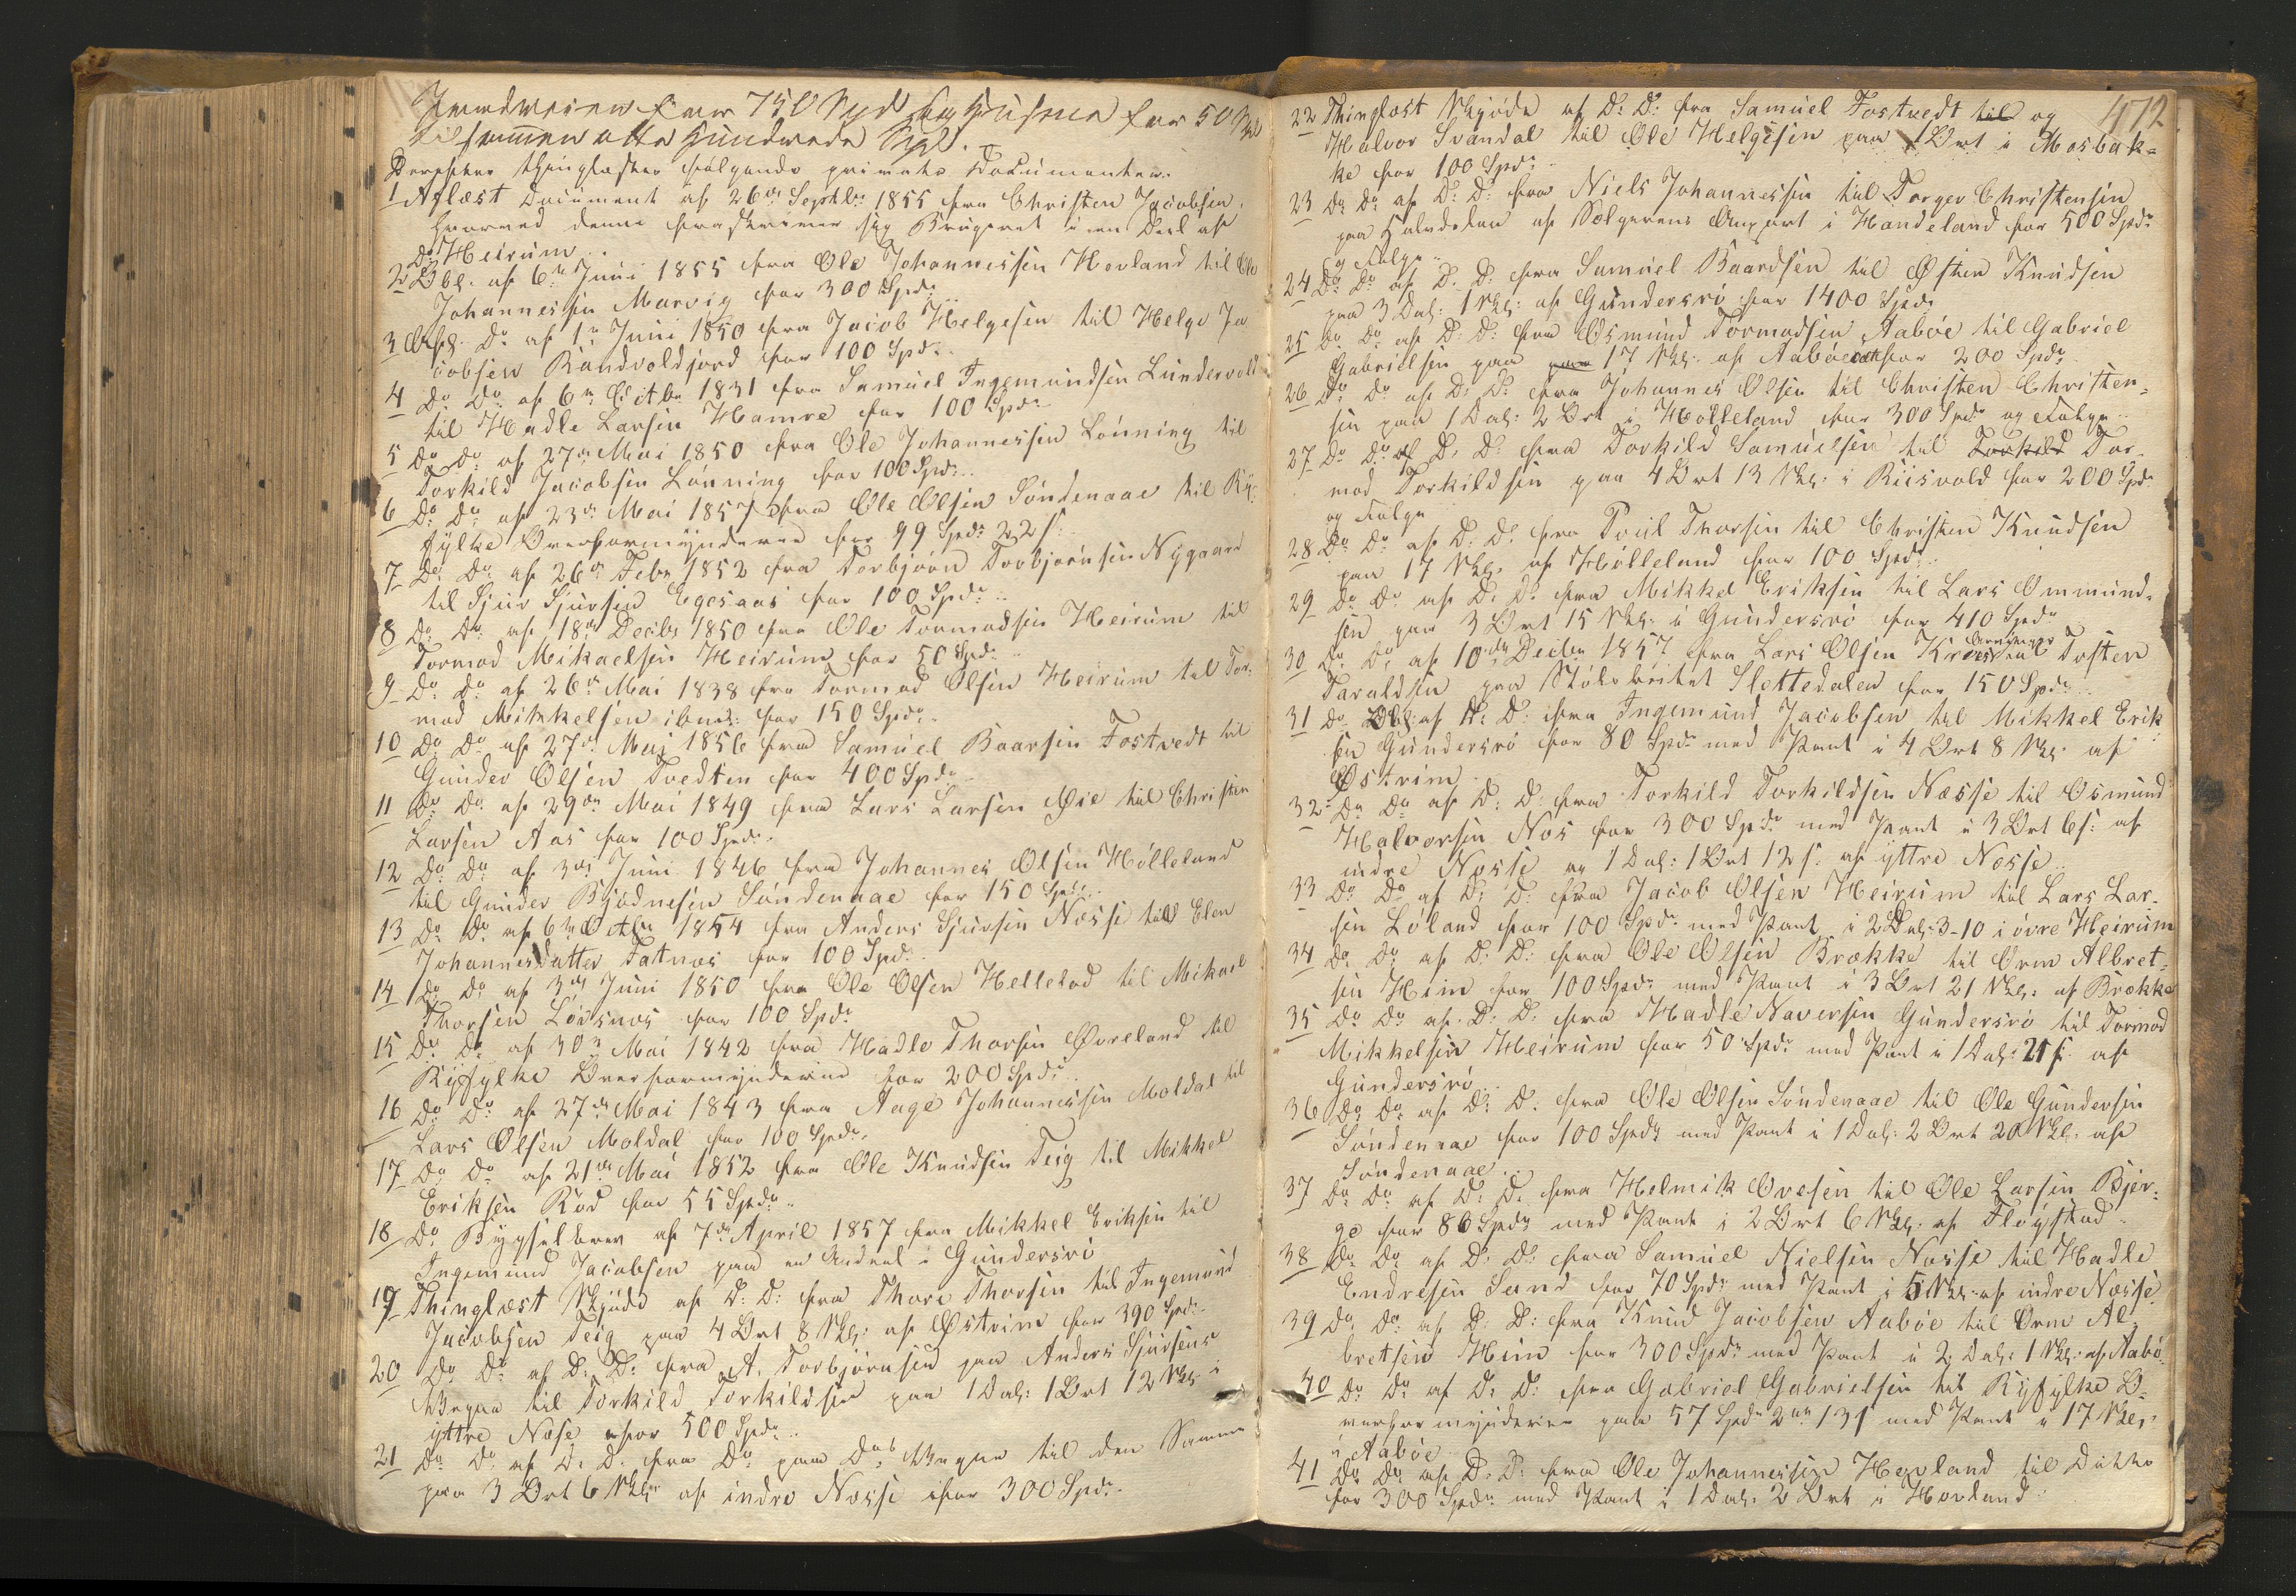 Jordveien for 750 Spd og Husene for 50 Spd
tilsammen otte hundrede Spd.
Derefter thinglæstes følgende private Documenter.
1 Aflæst Document af 26de Septbr: 1855 fra Christen Jacobsen,
hvorved denne fraskriver sig Brugsret i en Deel af
Heirum
2 Do Obl. af 6te Juni 1855 fra Ole Johannessen Hovland til Ole
Johannessen Marvig for 300 Spdr..
3 Do af 1te Juni 1850 fra Jacob Helgesen til Helge Ja
cobsen Bandvoldjord for 100 Spdr..
4 Do Do af 6te Octbr 1831 fra Samuel Ingemundsen Lundervold
til Hadle Larsen Hamre for 100 Spdr
5 Do Do af 27de Mai 1850 fra Ole Johannessen Lönning til
Torkild Jacobsen Lönning for 100 Spdr..
6 Do Do af 23de Mai 1857 fra Ole Olsen Söndenaae til Ry-
fylke Overformynderie for 99 Spdr 22 s.
7 Do Do af 26de Febr 1852 fra Torbjörn Torbjörnsen Nygaard
til Sjur Sjursen Egesaas for 100 Spdr..
8 Do Do af 18de Decbr 1850 fra Ole Tormodsen Heirum til
Tormod Mikaelsen Heirum for 50 Spdr..
9 Do Do af 26de Mai 1838 fra Tormod Olsen Heirum til Tor-
mod Mikkelsen ibmd: for 150 Spdr..
10 Do Do af 27de Mai 1856 fra Samuel Baarsen Fostvedt til
Gunder Olsen Tvedten for 400 Spdr..
11 Do Do af 29de Mai 1849 fra Lars Larsen Øie til Christen
Larsen Aas for 100 Spdr..
12 Do Do af 3de Juni 1846 fra Johannes Olsen Hölleland
til Gunder Bjödnesen Söndenaae for 150 Spdr..
13 Do Do af 6te Octbr 1854 fra Anders Sjursen Næsse till Elen
Johannesdatter Fatnæs for 100 Spdr.
14 Do Do af 3de Juni 1850 fra Ole Olsen Hellelad til Mikael
Thorsen Lövsnæs for 100 Spdr
15 Do Do af 30te Mai 1842 fra Hadle Thorsen Øvreland til
Ryfylke Overformynderie for 200 Spdr..
16 Do Do af 27de Mai 1843 fra Aage Johannessen Moldal til
Lars Olsen Moldal for 100 Spdr.
17 Do Do af 21de Mai 1852 fra Ole Knudsen Teig til Mikkel
Eriksen Röd for 55 Spdr..
18 Do Bygselbrev af 7de April 1857 fra Mikkel Eriksen til
Ingemund Jacobsen paa en Andeel i Gundersrö
19 Thinglæst Skjöde af D: D: fra Thore Thorsen til Ingemund
Jacobsen Teig paa 4 Ort 8 Skl: af Østrim for 390 Spdr
20 Do Do af D: D: fra A. Torbjörnsen paa Anders Sjursens
Vegne til Torkild Torkildsen paa 1 Dal: 1 Ort 12 Skl: i
yttre Næse for 500 Spdr..
21 Do Do af D: D: fra Do paa Dos Vegne til den Samme
paa 3 Ort 6 Skl: af indre Næsse for 300 Spdr.
472
22 Thinglæst Skjöde af D: D: fra Samuel Fostvedt til og
Halvor Svandal til Ole Helgesen paa 1 Ort i Mosbak-
ke for 100 Spdr..
23 Do Do af D: D: fra Niels Johannessen til Torger Christensen
paa Halvdelen af Sælgerens Anpart i Handeland for 500 Spdr
og Følge..
24 Do Do af D. D: fra Samuel Baardsen til Østen Knudsen
paa 3 Dal: 1 Skl: af Gundersrö for 1400 Spdr
25 Do Do af D: D: fra Osmund Tormodsen Aaböe til Gabriel
Gabrielsen paa paa 17 Skl: af Aaböe for 200 Spdr
26 Do Do af D: D: fra Johannes Olsen til Christen Christen-
sen paa 1 Dal: 2 Ort i Hölleland for 300 Spdr og Følge..
27 Do Do af D. D: fra Torkild Samuelsen til Torkild Tor-
mod Torkildsen paa 4 Ort 13 Skl: i Riisvold for 200 Spdr
og Følge
28 Do Do af D: D: fra Poul Thorsen til Christen Knudsen
paa 17 Skl. af Hölleland for 100 Spdr..
29 Do Do af D: D: fra Mikkel Eriksen til Lars Ommund-
sen paa 3 Ort 15 Skl: i Gundersrö for 410 Spdr
30 Do Do af 10de Decbr 1857 fra Lars Olsen Tosten
Taraldsen paa Slettedalen for 150 Spdr..
31 Do Obl: af D: D: fra Ingemund Jacobsen til Mikkel Erik
sen Gundersrö for 80 Spdr med Pant i 4 Ort 8 Skl: af
Østrim..
32 Do Do af D: D: fra Torkild Torkildsen Næsse til Osmund
Halvorsen Næs for 300 Spdr med Pant i 3 Ort 6 s: af
indre Næsse og 1 Dal: 1 Ort 12 s. af yttre Næsse..
33 Do Do af D: D: fra Jacob Olsen Heirum til Lars Lar-
sen Löland for 100 Spdr med Pant i 2 Dal: 3-10 i övre Heirum
34 Do Do af D: D: fra Ole Olsen Brække til Orm Albret-
sen Heim for 100 Spdr med Pant i 3 Ort 21 Skl: af Brække
35 Do Do af D: D: fra Hadle Naversen Gundersrö til Tormod
Mikkelsen Heirum for 50 Spdr med Pant i 1 Dal: 21 s. af
Gundersrö..
36 Do Do af D: D. fra Ole Olsen Söndenaae til Ole Gundersen
Söndenaae for 100 Spdr med Pant i 1 Dal: 2 Ort 20 Skl: af
Söndenaae..
37 Do Do af D: D. fra Helmik Ovesen til Ole Larsen Bjer-
ge for 86 Spdr med Pant i 2 Ort 6 Skl: af Flöystad..
38 Do Do af D: D: fra Samuel Nielsen Næsse til Hadle
Endresen Sand for 70 Spdr med Pant i 5 Skl: af indre Næsse
39 Do Do af D: D: fra Knud Jacobsen Aaböe til Orm Al-
bretsen Heim for 300 Spdr med Pant i 2 Dal: 1 Skl: af Aabö.
40 Do Do af D: D: fra Gabriel Gabrielsen til Ryfylke O-
verformynderie paa 57 Spdr 2 Ort 13 s med Pant i 17 Skl:
i Aaböe
41 Do Do af D: D: fra Ole Johannessen Hovland til Ditto
for 300 Spdr med Pant i 1 Dal: 2 Ort i Hovland